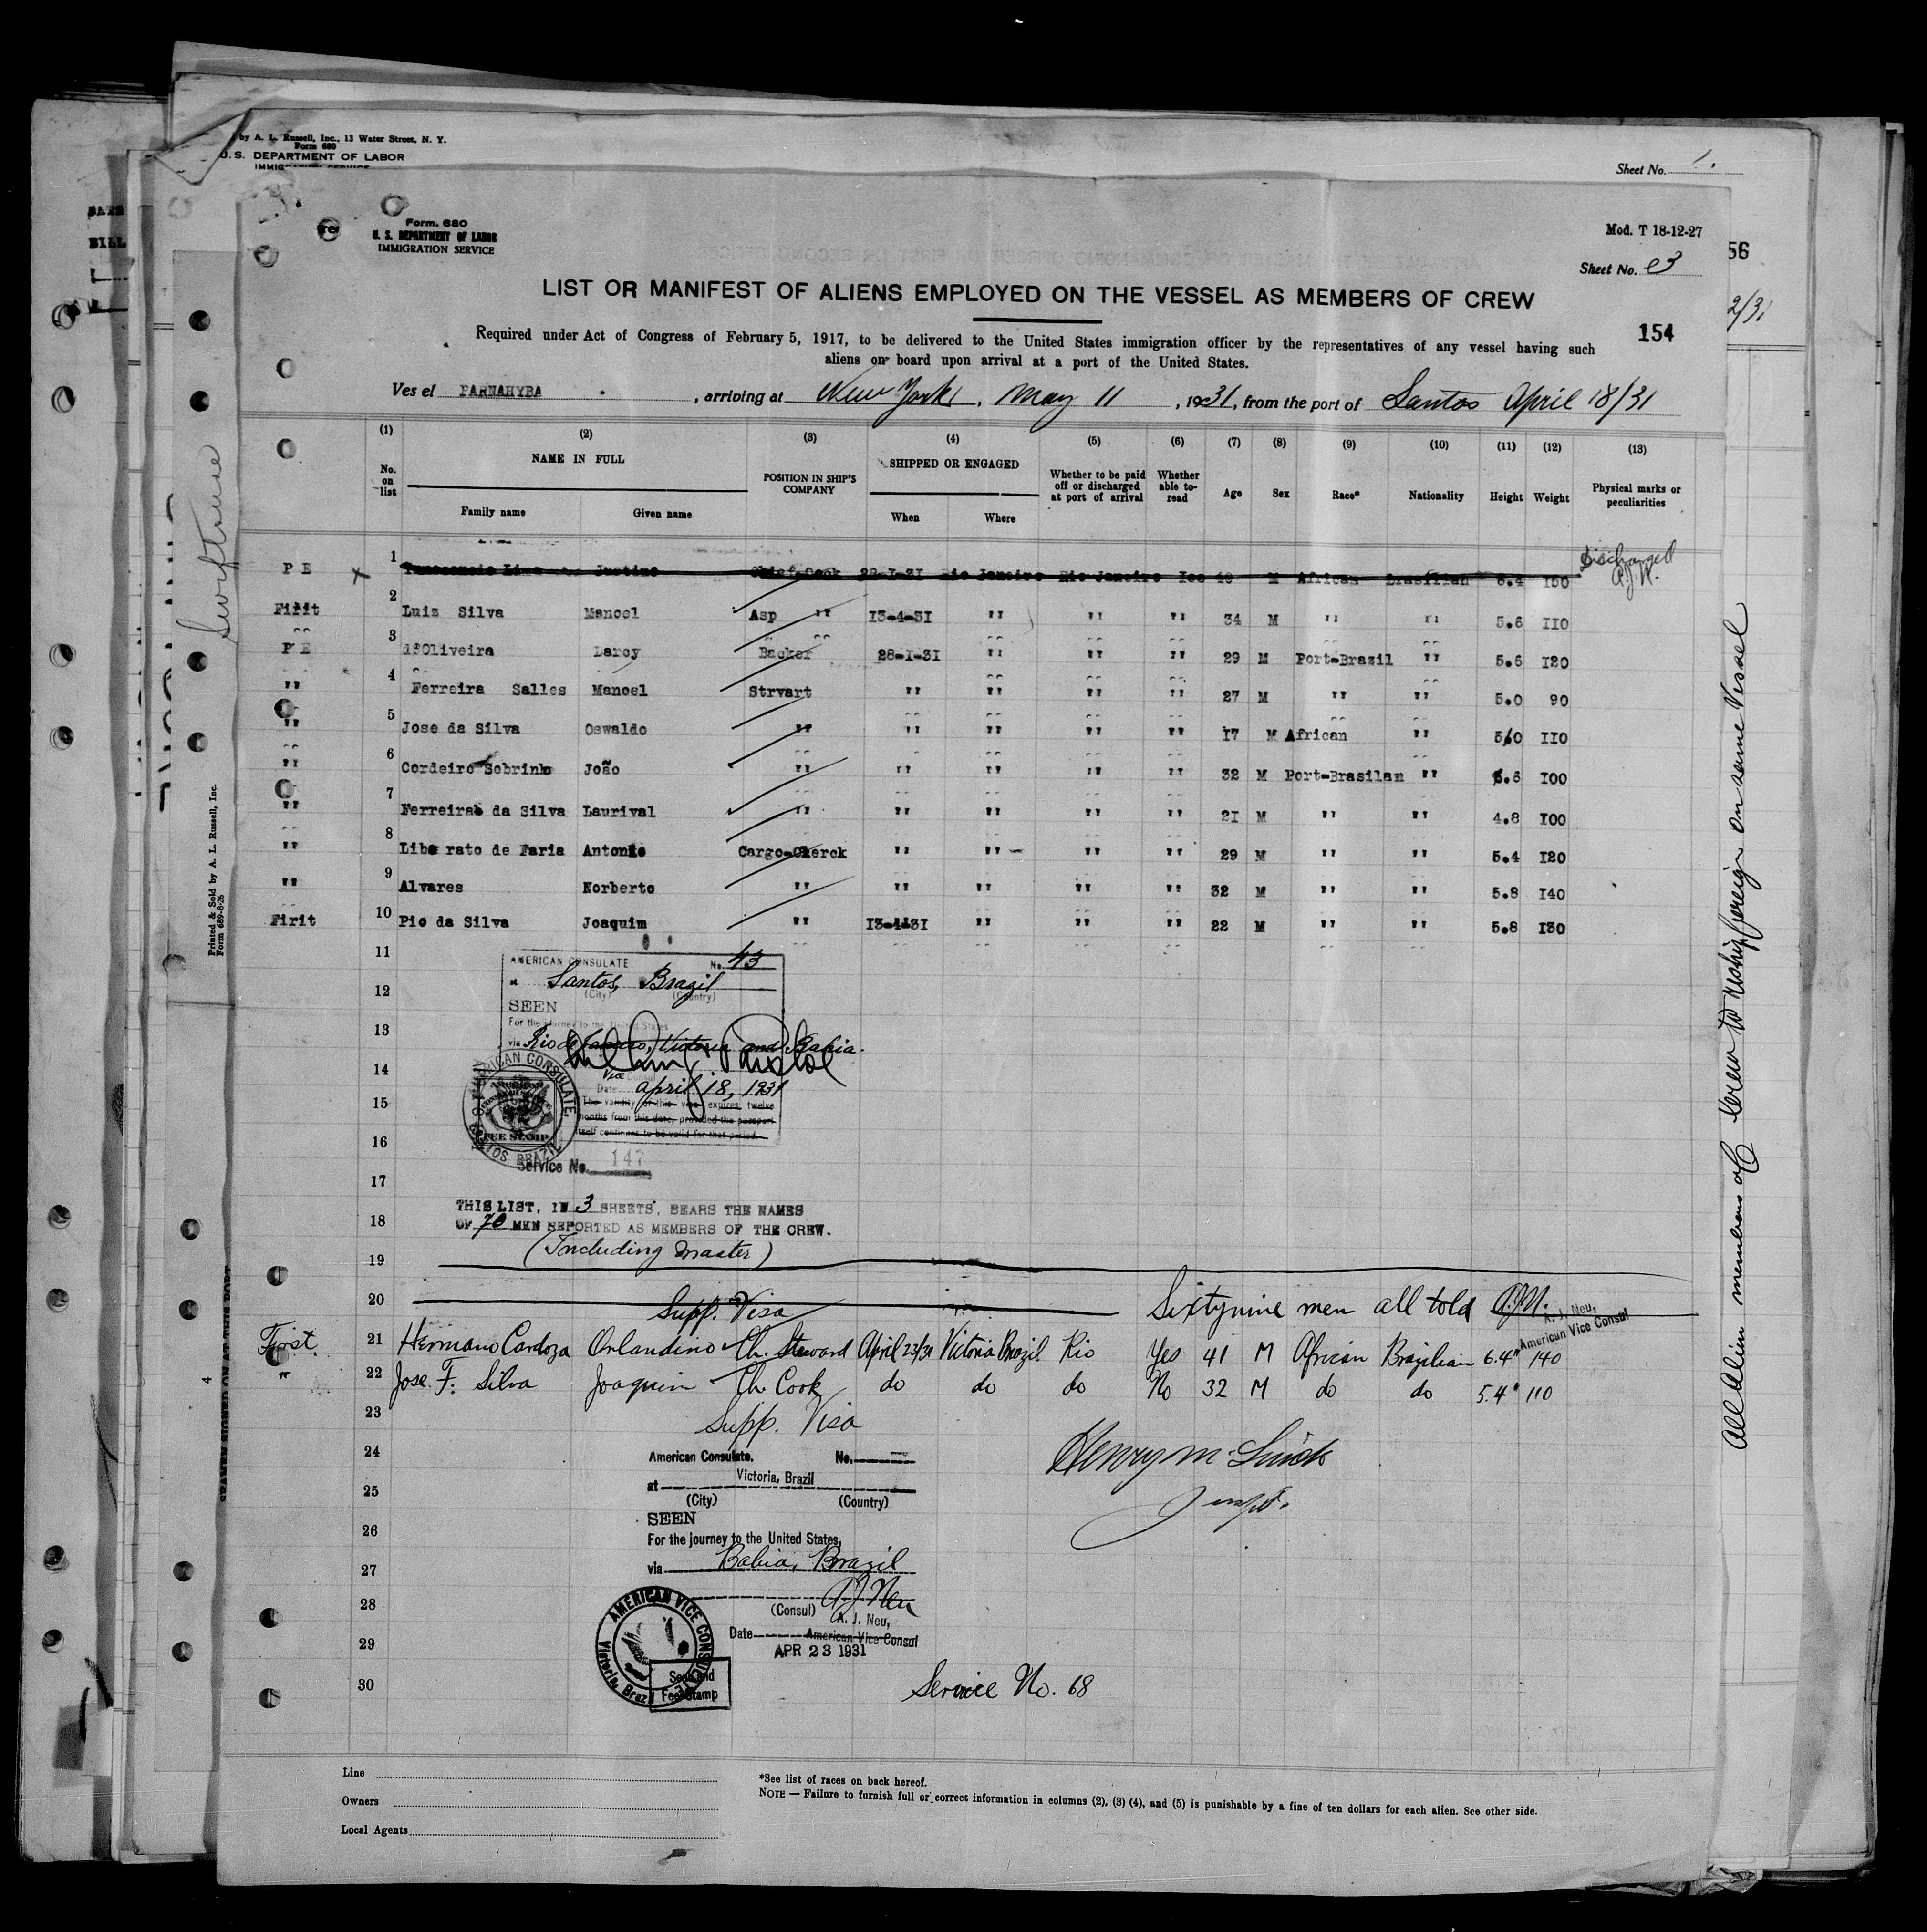 by A. L. Russell, Inc., 13 Water Street, N. Y.
Form 680
U.S. DEPARTMENT OF LABOR
Sheet No. 1.
Form. 680
U. S. DEPARTMENT OF LABOR
IMMIGRATION SERVICE
Mod. T 18-12-27
Sheet No. 3
56
2/31
LIST OR MANIFEST OF ALIENS EMPLOYED ON THE VESSEL AS MEMBERS OF CREW
154
Required under Act of Congress of February 5, 1917, to be delivered to the United States immigration officer by the representatives of any vessel having such
aliens on board upon arrival at a port of the United States.
Ves el PARNAHYBA , arriving at New York, May 11 , 1931, from the port of Santos April 18/31
(1) (2) (3) (4) (5) (6) (7) (8) (9) (10) (11) (12) (13)
No. on list NAME IN FULL Family name Given name POSITION IN SHIP'S COMPANY SHIPPED OR ENGAGED When Where Whether to be paid off or discharged at port of arrival Whether able to read Age Sex Race* Nationality Height Weight Physical marks or peculiarities
P E X 1 Lima Justino Chief-Cook 28-I-31 Rio Janeiro Rio Janeiro M African Brasilian 5.4 150 Discharged A.J.N.
Firit 2 Luis Silva Manoel Asp " 13-4-31 " " " 34 M " " 5.6 110
P E 3 d'Oliveira Darcy Backer 28-I-31 " " " 29 M Port-Brazil " 5.6 120
" 4 Ferreira Salles Manoel Strvart " " " " 27 M " " 5.0 90
" 5 Jose da Silva Oswaldo " " " " " 17 M African " 5.0 110
" 6 Cordeiro Sobrinho João " " " " " 32 M Port-Brasilan " 5.6 100
" 7 Ferreira da Silva Laurival " " " " " 21 M " " 4.8 100
" 8 Libe rato de Faria Antonio Cargo-Clerck " " " " 29 M " " 5.4 120
" 9 Alvares Norberto " " " " " 32 M " " 5.8 140
Firit 10 Pio da Silva Joaquim " 13-4-31 " " " 22 M " " 5.8 130
11
AMERICAN CONSULATE No. 43
12
at Santos, Brazil
(City) (Country)
SEEN
13
For the journey to the United States
via Rio de Janeiro, Victoria and Bahia.
14
Vice Consul
Date April 18, 1931
15
The validity of this visa expires twelve
months from this date, provided the passport
itself continues to be valid for that period.
16
AMERICAN CONSULATE, SANTOS, BRAZIL
FEE STAMP
Service No. 147
17
THIS LIST, IN 3 SHEETS, BEARS THE NAMES
18
OF 70 MEN REPORTED AS MEMBERS OF THE CREW.
(Including Master)
19
20 Supp. Visa Sixtynine men all told A.J.N.
A. J. Neu,
American Vice Consul
First. 21 Hermano Cardoza Orlandino Ch. Steward April 23/31 Victoria Brazil Rio Yes 41 M African Brazilian 6.4" 140
" 22 Jose F. Silva Joaquim Ch. Cook do do do No 32 M do do 5.4" 110
23 Supp. Visa
24 American Consulate. No.
at Victoria, Brazil
25 (City) (Country)
SEEN
26 For the journey to the United States,
27 via Bahia, Brazil
A.J. Neu
28 (Consul) A. J. Neu,
Date American Vice Consul
29 APR 23 1931
AMERICAN VICE CONSUL
Victoria, Brazil
Seal and
Fee Stamp
30 Service No. 68
Line
Owners
Local Agents
*See list of races on back hereof.
NOTE — Failure to furnish full or correct information in columns (2), (3) (4), and (5) is punishable by a fine of ten dollars for each alien. See other side.
All alien members of crew to reship foreign on same Vessel
Printed & Sold by A. L. Russell, Inc.
Form 689-8-26
4